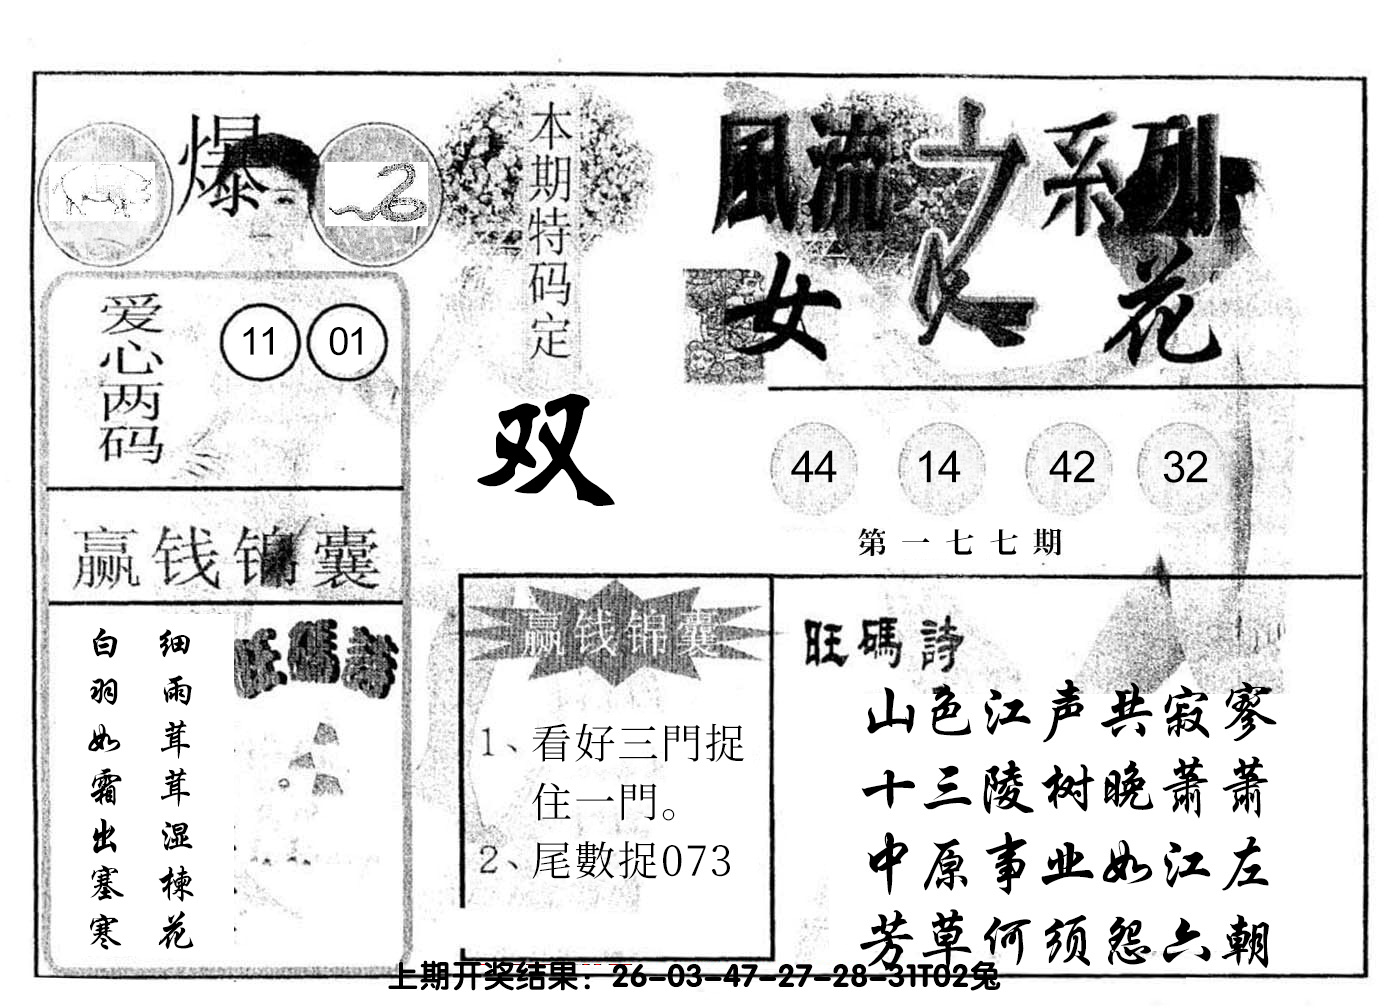 爆
本期特码定
双
風流之系列
女人花
爱心两码
11 01
44 14 42 32
第一七七期
赢钱锦囊
旺碼詩
细雨茸茸湿楝花
白羽如霜出塞寒
赢钱锦囊
1、看好三門捉
住一門。
2、尾數捉073
旺碼詩
山色江声共寂寥
十三陵树晚萧萧
中原事业如江左
芳草何须怨六朝
上期开奖结果：26-03-47-27-28-31T02兔